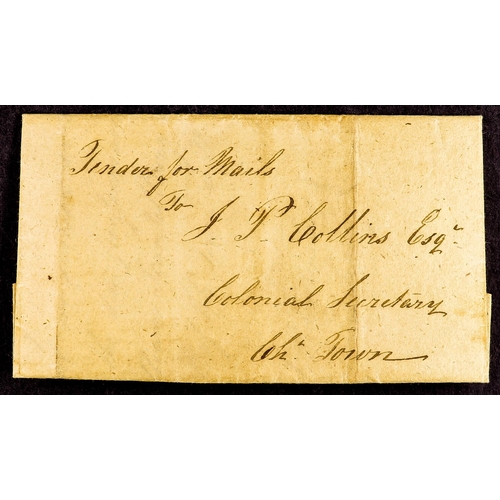 Tender for Mails
To
J. P. Collins Esqr
Colonial Secretary
Chn Town